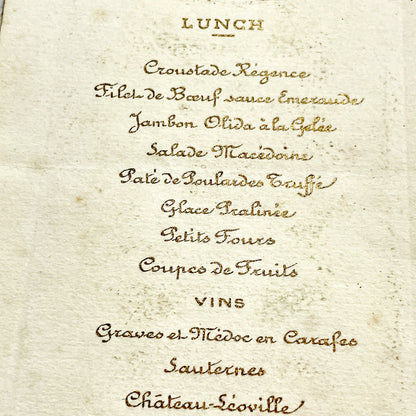 LUNCH
Croustade Régence
Filet de Bœuf sauce Emeraude
Jambon Olida à la Gelée
Salade Macédoine
Paté de Poulardes Truffé
Glace Pralinée
Petits Fours
Coupes de Fruits
VINS
Graves et Médoc en Carafes
Sauternes
Château-Léoville